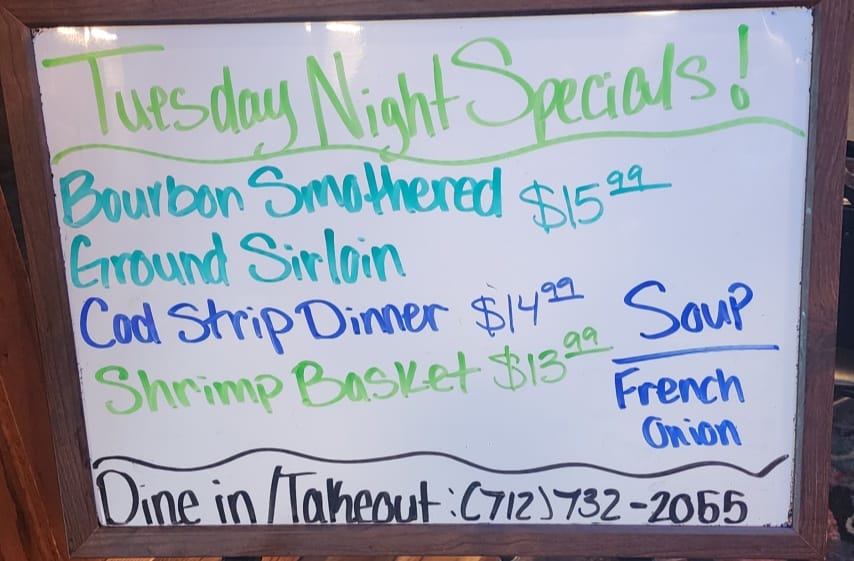 Tuesday Night Specials!
Bourbon Smothered $15.99
Ground Sirloin
Cod Strip Dinner $14.99
Shrimp Basket $13.99
Soup
French
Onion
Dine in/Takeout: (712)732-2055